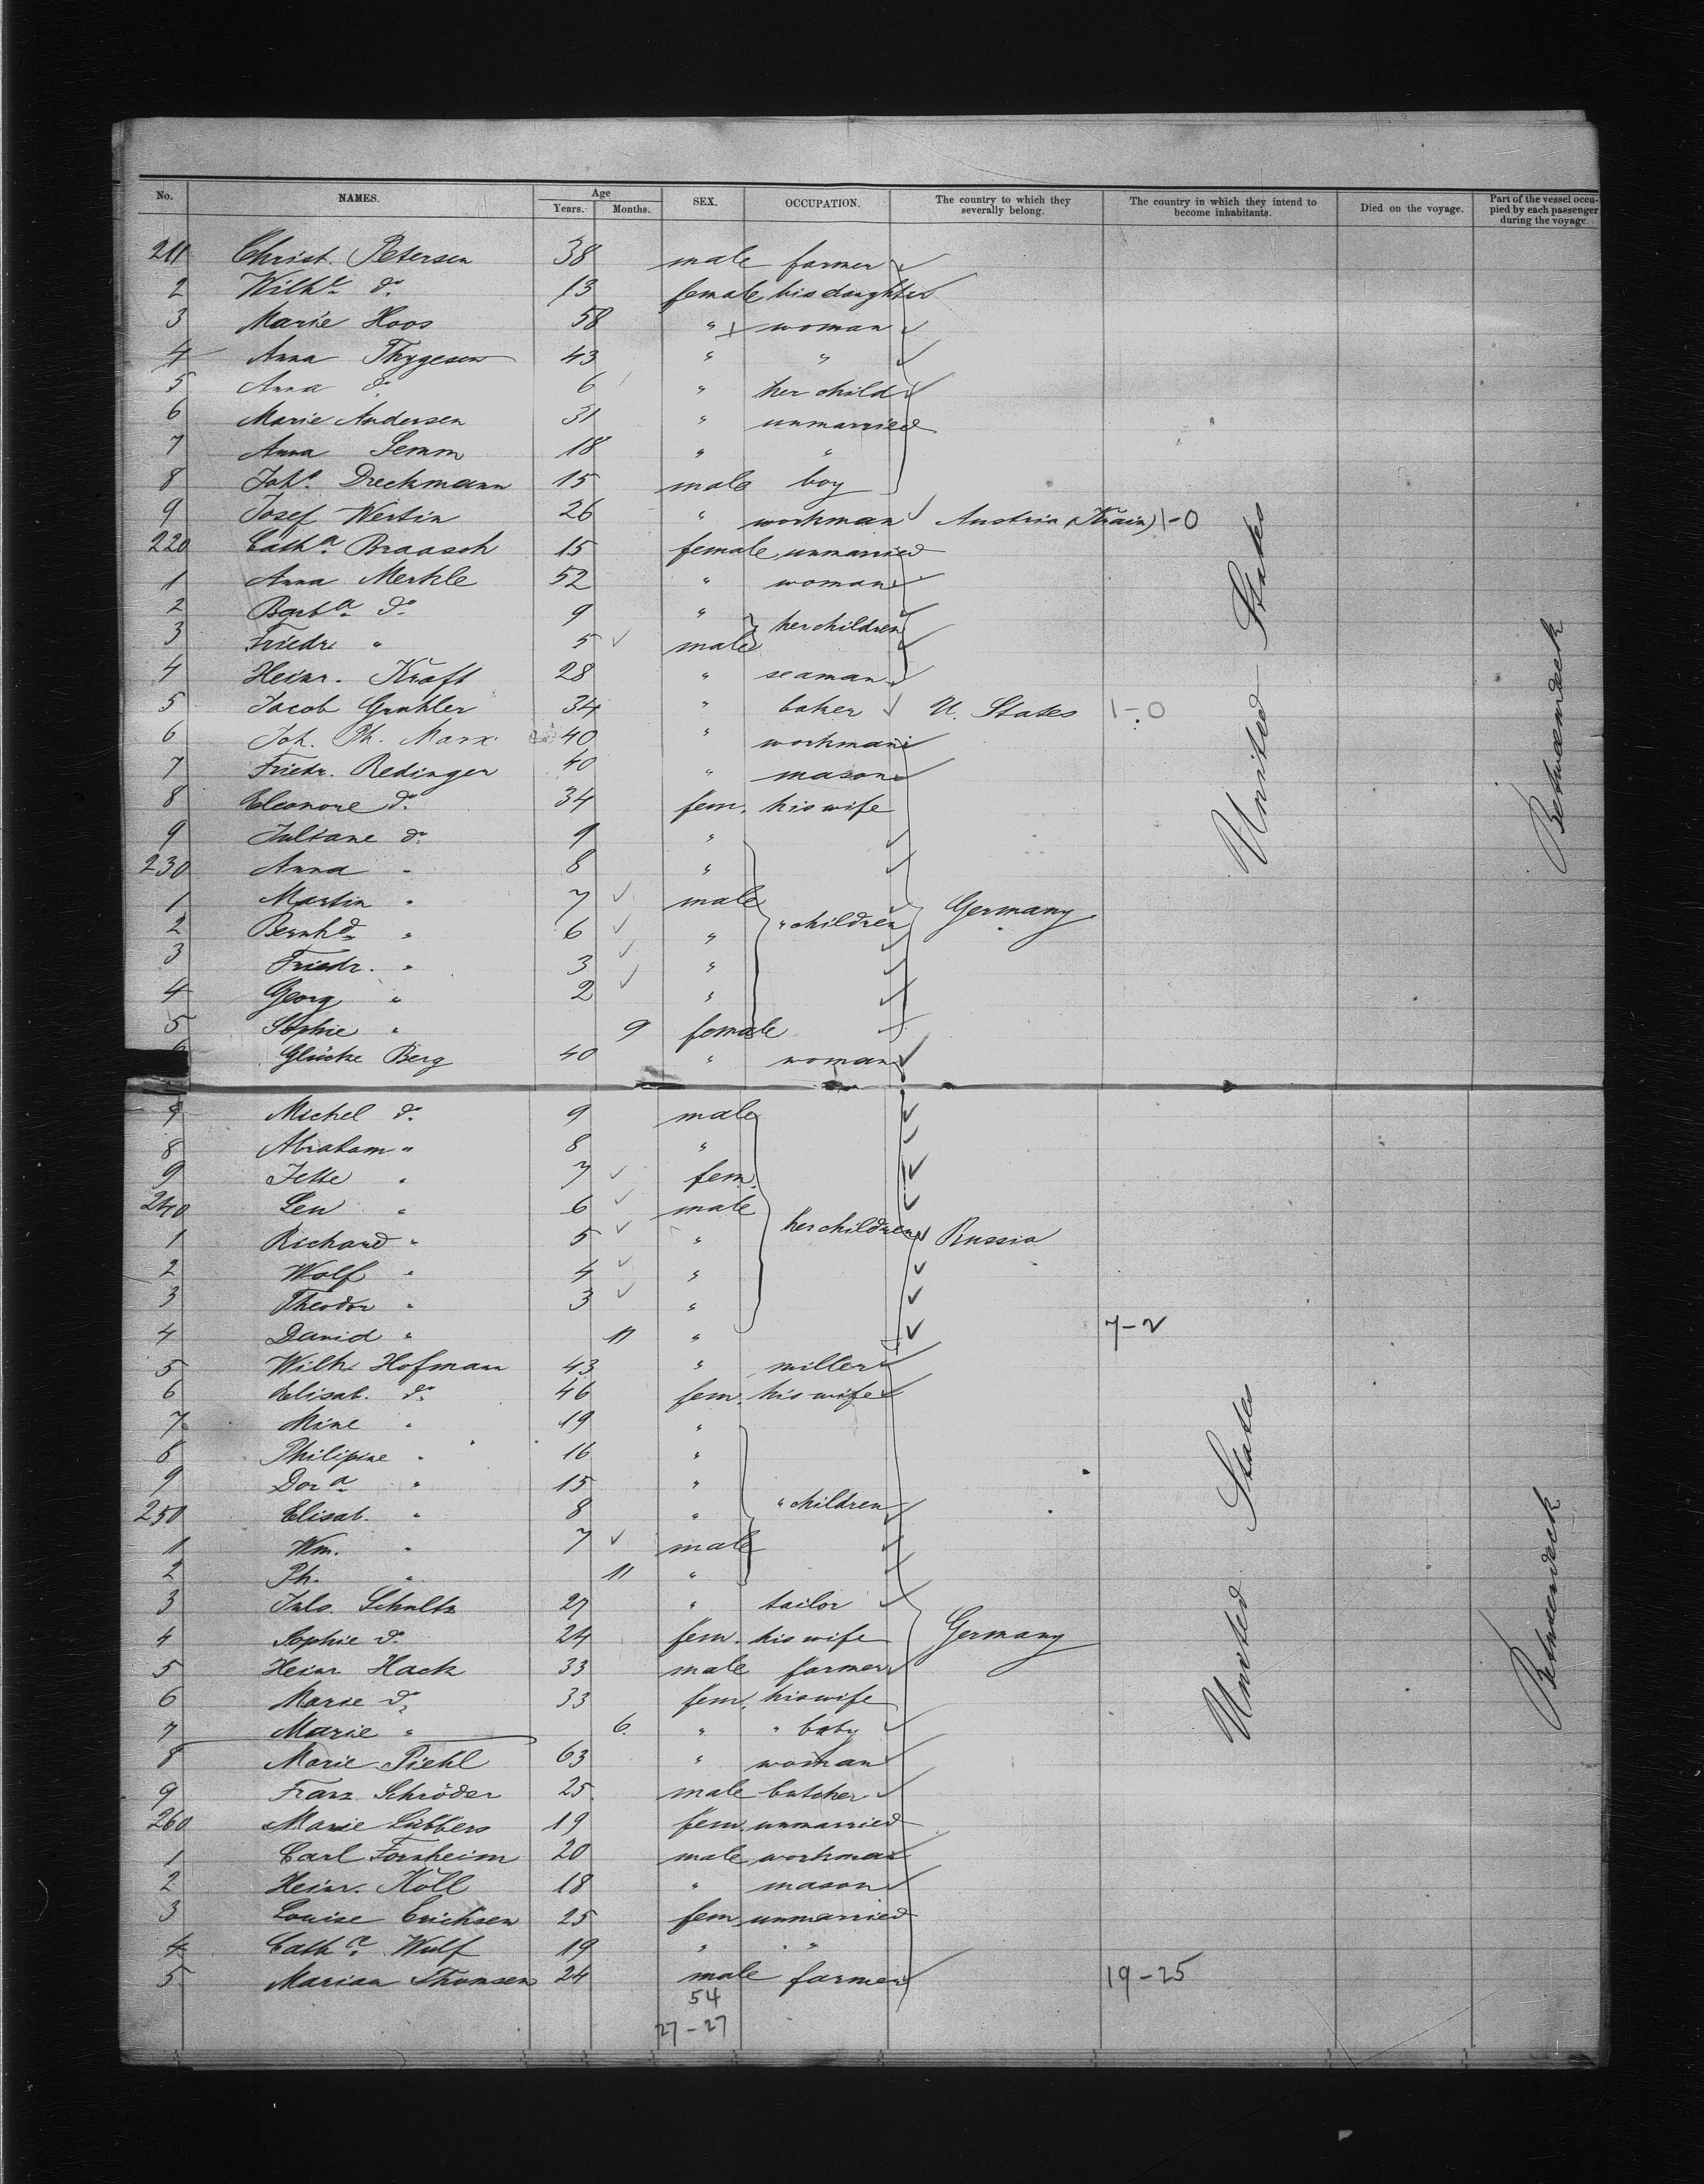 No. NAMES. Age Years. Months. SEX. OCCUPATION. The country to which they severally belong. The country in which they intend to become inhabitants. Died on the voyage. Part of the vessel occupied by each passenger during the voyage.
211 Christ. Petersen 38 male farmer
2 Wilhe do 13 female his daughter
3 Marie Hoos 58 " woman
4 Anna Thygesen 43 " "
5 Anna do 6 " her child
6 Marie Andersen 31 " unmarried
7 Anna Semm 18 " "
8 Johs. Dreckmann 15 male boy
9 Josef Wertin 26 " workman Austria (Krain) 1-0
220 Catha Braasch 15 female unmarried
1 Anna Merkle 52 " woman
2 Barba do 9 "
her children
3 Friedr. " 5 male
4 Heinr. Kraft 28 " seaman
5 Jacob Grubler 34 " baker U. States 1-0
6 Joh. Ph. Marx 40 " workman
7 Friedr. Redinger 40 " mason
8 Eleonore do 34 fem. his wife
9 Juliane do 9 "
230 Anna " 8 "
1 Martin " 7 male Germany
2 Bernhd " 6 " " children
3 Friedr. " 3 "
4 Georg " 2 "
5 Sophie " 9 female
Glücke Berg 40 " woman
United States
Betweendeck
7 Michel do 9 male
8 Abraham " 8 "
9 Jette " 7 fem.
240 Leu " 6 male
1 Richard " 5 " her children Russia
2 Wolf " 4 "
3 Theodor " 3 "
4 David " 11 " 7-2
5 Wilh. Hofmann 43 " miller
6 Elisab. do 46 fem. his wife
7 Mine " 19 "
8 Philipine " 16 "
9 Dora " 15 "
250 Elisab. " 8 " " children
1 Wm. " 7 male
2 Ph. " 11 "
3 Juls. Schultz 27 " tailor
4 Sophie do 24 fem. his wife Germany
5 Heinr Hack 33 male farmer
6 Marie do 33 fem. his wife
7 Marie " 6. " " baby
8 Marie Piehl 63 " woman
9 Franz Schröder 25 male butcher
260 Marie Lübbers 19 fem. unmarried
1 Carl Fornheim 20 male workman
2 Heinr. Köll 18 " mason
3 Louise Erichsen 25 fem. unmarried
4 Catha Wulf 19 " "
5 Marian Thomsen 24 male farmer 19-25
United States
Betweendeck
54
27-27